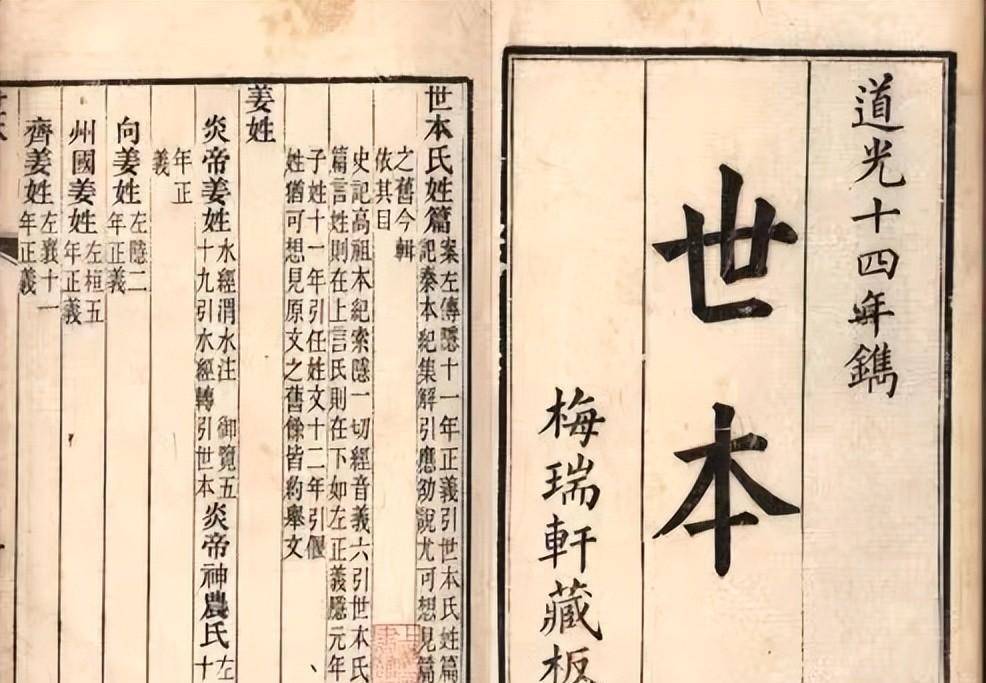 道光十四年鐫
世本
梅瑞軒藏板
世本氏姓篇
案左傳隱十一年正義引世本氏姓篇
記秦本紀集解引應劭說尤可想見篇
之舊今輯
依其目
史記高祖本紀索隱一切經音義六引世本氏
篇言姓則在上言氏則在下如左正義隱元年
子姓十一年引任姓文十二年引偃
姓猶可想見原文之舊餘皆約舉文
姜姓
炎帝姜姓
水經渭水注 御覽五
十九引水經轉引世本
炎帝神農氏
左
十
年正
義
向姜姓
左隱二
年正義
州國姜姓
左桓五
年正義
齊姜姓
左襄十一
年正義